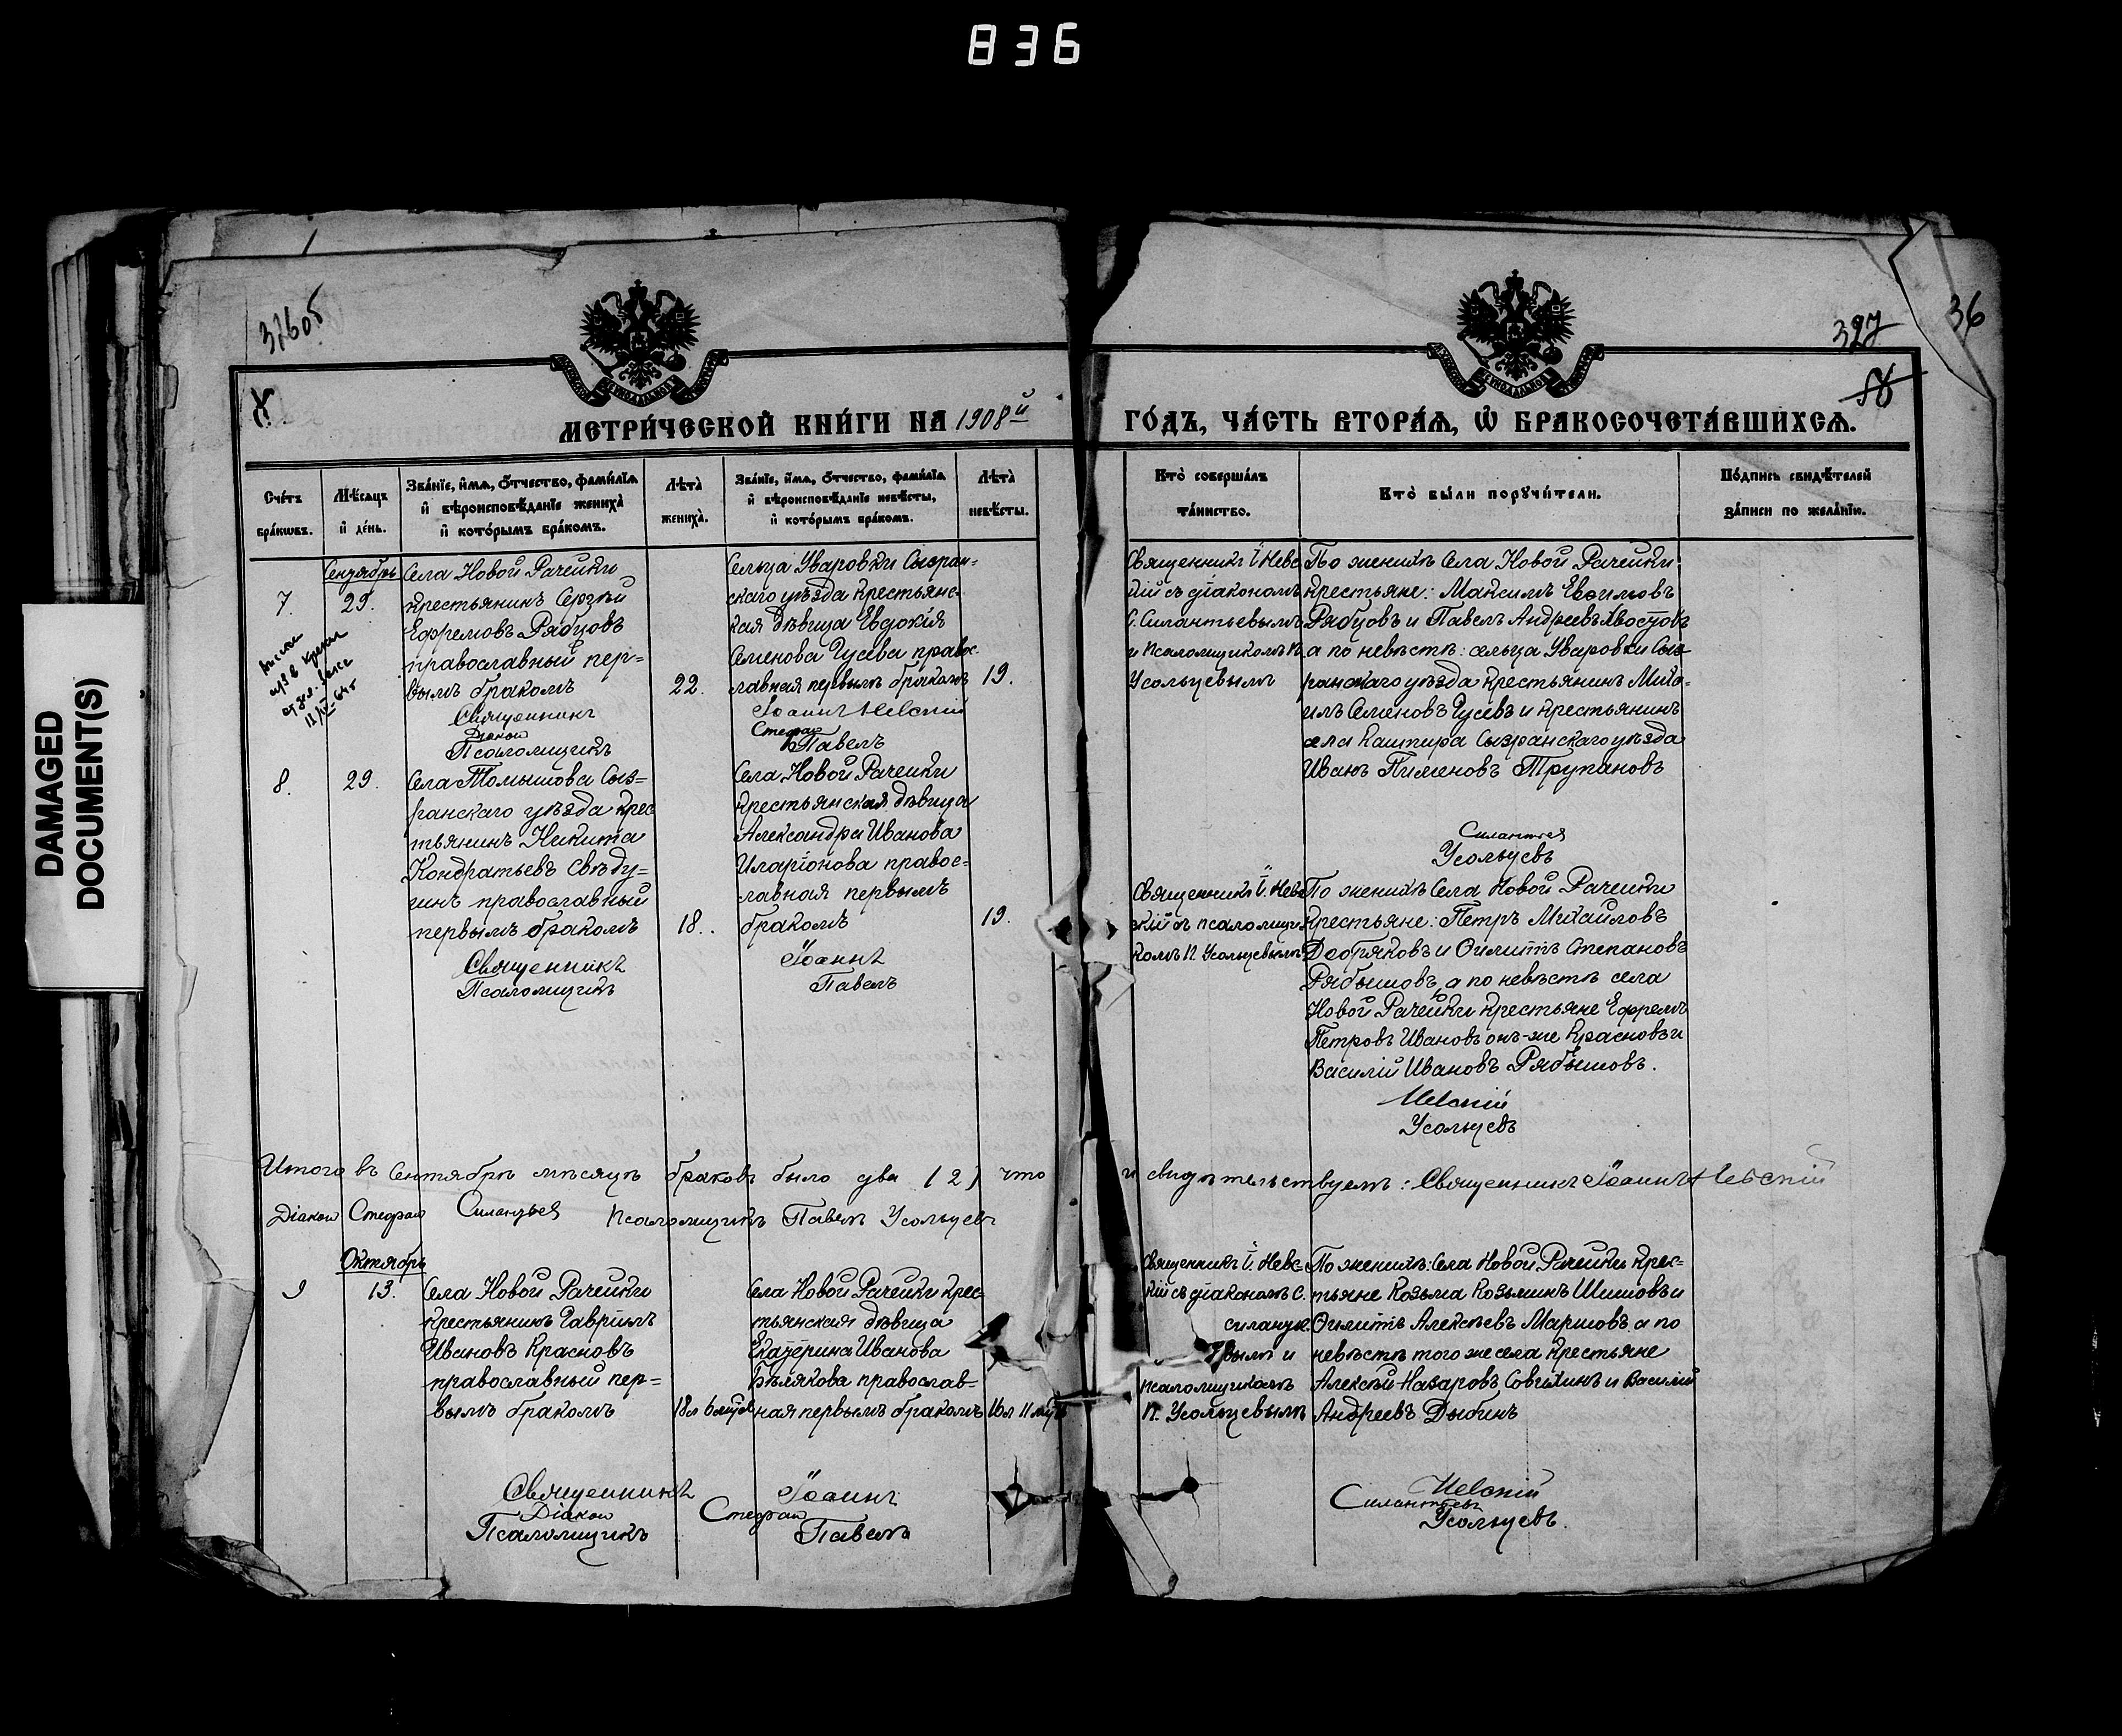 836
DAMAGED
DOCUMENT(S)
326об
327
36
МЕТРИ́ЧЕСКОЙ КНИ́ГИ НА 1908й ГО́ДЪ, ЧА́СТЬ ВТОРА́Ѧ, Ѡ БРАКОСОЧЕТА́ВШИХСѦ.
Сче́тъ бра́кѡвъ.
Мѣ́сѧцъ и де́нь.
Зва́нїе, и́мѧ, о́тчество, фами́лїѧ и вѣроисповѣ́данїе жениха̀ и кото́рымъ бра́комъ.
Лѣта̀ жениха̀.
Зва́нїе, и́мѧ, о́тчество, фами́лїѧ и вѣроисповѣ́данїе невѣ́сты, и кото́рымъ бра́комъ.
Лѣта̀ невѣ́сты.
Кто̀ соверша́лъ та́инство.
Кто̀ бы́ли порꙋчи́тели.
По́дпись свидѣ́телей за́писи по жела́нїю.
Сентябрь
7.
29.
Села Новой Рачейки
крестьянинъ Сергѣй
Ефремовъ Рябцовъ
православный пер=
вымъ бракомъ
22.
Сельца Уваровки Сызран=
скаго уѣзда крестьянс-
кая дѣвица Евдокія
Семенова Гусева правос-
лавная первымъ бракомъ
19.
Священникъ І. Невс
кій съ діакономъ
С. Силантьевымъ
и псаломщикомъ П.
Усольцевымъ
По женихѣ Села Новой Рачейки
крестьяне: Максимъ
Рябцовъ и Павелъ Андреевъ Хвостовъ
а по невѣстѣ: сельца Уваровки Сыз-
ранскаго уѣзда крестьянинъ Миха-
илъ Семеновъ Гусевъ и крестьянинъ
села Каштира Сызранскаго уѣзда
Иванъ Пименовъ Трупановъ
Священникъ Іоаннъ Невскій
Діакон Стефан Силантьев
Псаломщикъ Павелъ Усольцевъ
8.
29.
Села Томышова Сыз=
ранскаго уѣзда крес
тьянинъ Никита
Кондратьевъ Свѣду=
гинъ православный
первымъ бракомъ
18.
Села Новой Рачейки
крестьянская дѣвица
Александра Иванова
Иларіонова правос=
лавная первымъ
бракомъ
19.
Священникъ І. Невс
кій съ псаломщи
комъ П. Усольцевымъ
По женихѣ Села Новой Рачейки
крестьяне: Петръ Михайловъ
Добряковъ и Филиппъ Степановъ
Рябышовъ, а по невѣстѣ села
Новой Рачейки крестьяне Ефремъ
Петровъ Ивановъ онъ-же Красновъ и
Василій Ивановъ Рябышовъ.
Священникъ Іоаннъ Невскій
Псаломщикъ Павелъ Усольцевъ
Итого въ Сентябрѣ мѣсяцѣ браковъ было два (2) что и свидѣтельствуемъ: Священникъ Іоаннъ Невскій
Діакон Стефан Силантьев Псаломщикъ Павелъ Усольцевъ
Октябрь
9
13.
Села Новой Рачейки
крестьянинъ Гавріилъ
Ивановъ Красновъ
православный пер=
вымъ бракомъ
18л 6 мѣс
Села Новой Рачейки крес
тьянская дѣвица
Екатерина Иванова
Бѣлякова православ=
ная первымъ бракомъ
16л 11 мѣс
Священникъ І. Невс=
кій съ діакономъ С.
Силанть
евымъ и
псаломщикомъ
П. Усольцевымъ
По женихѣ: Села Новой Рачейки крес=
тьяне Козьма Козьминъ Шишовъ и
Филиппъ Алексѣевъ Маршовъ а по
невѣстѣ того же села крестьяне
Алексѣй Назаровъ Совгилинъ и Василій
Андреевъ Дыбинъ
Священникъ Іоаннъ Невскій
Діакон Стефан Силантьевъ
Псаломщикъ Павелъ Усольцевъ.